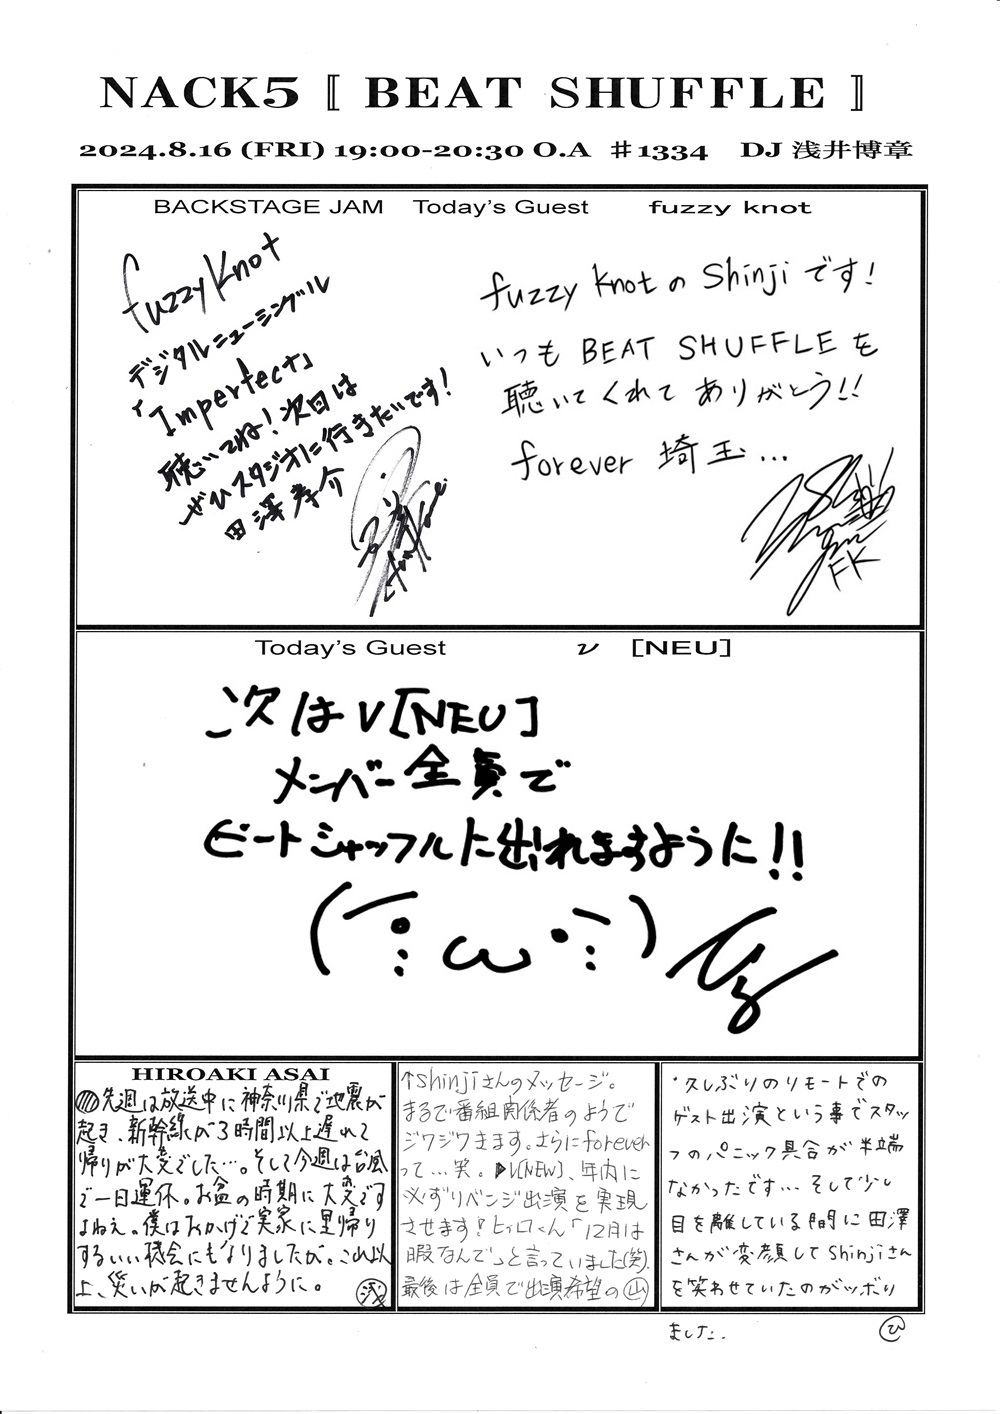 NACK5『 BEAT SHUFFLE 』
2024.8.16 (FRI) 19:00-20:30 O.A #1334 DJ 浅井博章
BACKSTAGE JAM Today's Guest fuzzy knot
fuzzy knot
デジタルニューシングル
「Imperfect」
聴いてね!次回は
ぜひスタジオに行きたいです!
田澤孝介
fuzzy knot の Shinji です!
いつも BEAT SHUFFLE を
聴いてくれて ありがとう!!
forever 埼玉...
FK
Today's Guest ν [NEU]
次は ν[NEU]
メンバー全員で
ビートシャッフルに出れますように!!
HIROAKI ASAI
先週は放送中に神奈川県で地震が
起き、新幹線が3時間以上遅れて
帰りが大変でした…。そして今週は台風
で一日運休。お盆の時期に大変です
よねぇ。僕はおかげで実家に里帰り
するいい機会にもなりましたが。これ以
上、災いが起きませんように。 浅
↑Shinjiさんのメッセージ。
まるで番組関係者のようで
ジワジワきます。さらにforever
って…笑。▶V[NEW]、年内に
必ずリベンジ出演を実現
させます!ヒィロくん「12月は
暇なんで」と言っていました(笑)。
最後は全員で出演希望の 山
・久しぶりのリモートでの
ゲスト出演という事でスタッ
フのパニック具合が半端
なかったです… そして少し
目を離している間に田澤
さんが変顔してShinjiさん
を笑わせていたのがツボり
ました. ひ